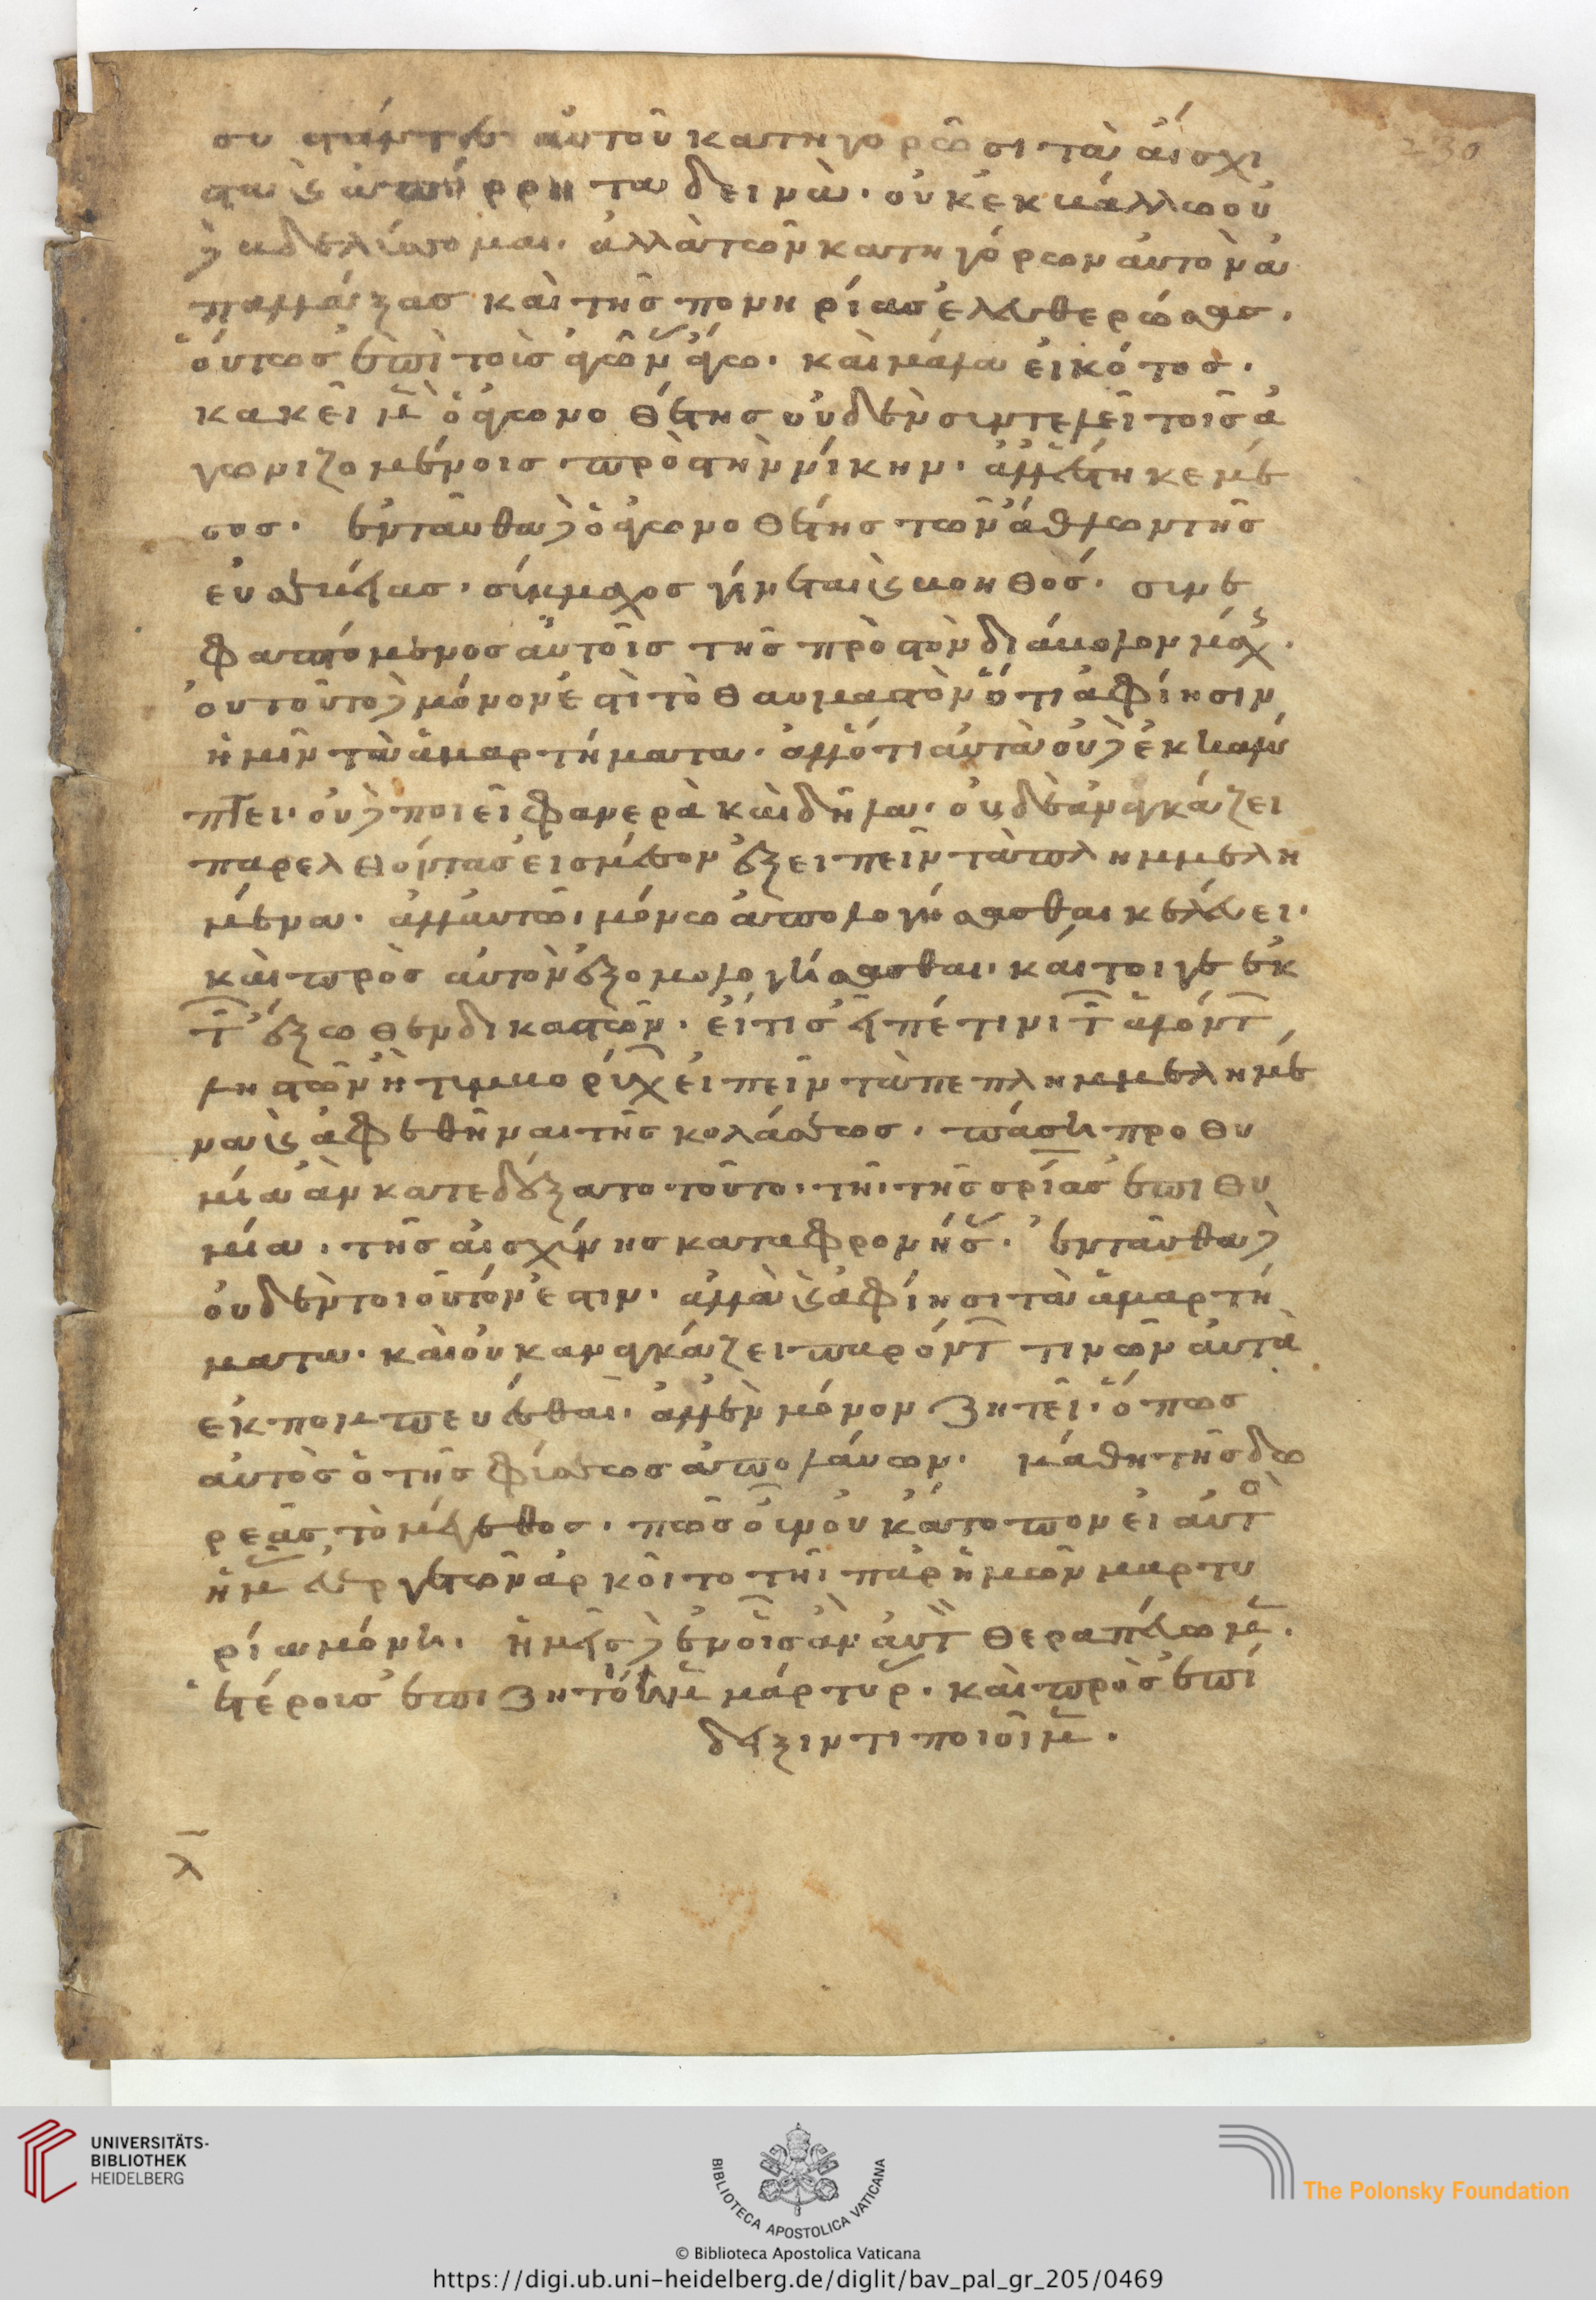 230
συ πάντες αὐτοῦ κατηγορῶσι τὰ αἴσχι
στα ϗ ἀπόρρητα δεινὰ. οὐκ ἐκβάλλω οὐ
δὲ βδελύττομαι. ἀλλὰ τῶν κατηγόρων αὐτὸν ἀ
παλλάξας καὶ τῆς πονηρίας ἐλευθερώσας.
ὄντως ἐπὶ τοῖς
κακεῖ μὲν ὁ ἀγωνοθέτης οὐδὲν συντελεῖ τοῖς ἀ
γωνιζομένοις πρὸς τὴν νίκην. ἀλλ' ἕστηκε μέ
σος. ἐνταῦθα δὲ ὁ ἀγωνοθέτης τῶν ἄθλων τῆς
εὐσεβείας. σύμμαχος γίνεται ϗ βοηθός. συνε
φαπτόμενος αὐτοῖς τῆς πρὸς τὸν διάβολον μάχης.
οὐ τοῦτο δὲ μόνον ἐστὶ τὸ θαυμαστὸν ὅτι ἀφίησιν
ἡμῖν τὰ ἁμαρτήματα. ἀλλ' ὅτι αὐτὰ οὐδὲ ἐκκαλύ
πτει. οὐδὲ ποιεῖ φανερὰ καὶ δῆλα. οὐδὲ ἀναγκάζει
παρελθόντας εἰς μέσον ἐξειπεῖν τὰ πλημμελη
μένα. ἀλλ' αὐτῶ μόνω ἀπολογήσασθαι κελεύει.
καὶ πρὸς αὐτὸν ἐξομολογήσασθαι. καίτοι γε ἐκ
τῶν ἔξωθεν δικαστῶν. εἴ τις ἐπέ τινι τῶν ἁλόντων
ληστῶν ἢ τυμβορύχων εἰπεῖν τὰ πεπλημμελημέ
να ϗ ἀφεθῆναι τῆς κολάσεως. πάση προθυ
μία ἂν κατεδέξατο τοῦτο. τῇ τῆς σρίας ἐπιθυ
μία. τῆς αἰσχύνης καταφρονήσας. ἐνταῦθα δὲ
οὐδὲν τοιοῦτόν ἐστιν. ἀλλὰ ϗ ἀφίησι τὰ ἁμαρτή
ματα. καὶ οὐκ ἀναγκάζει παρόντων τινῶν αὐτὰ
ἐκπομπεύεσθαι. ἀλλ' ἓν μόνον ζητεῖ. ὅπως
αὐτὸς ὁ τῆς ἀφέσεως ἀπολαύων. μάθη τῆς δω
ρεᾶς τὸ μέγεθος. πῶς οὖν οὐκ ἄτοπον εἰ αὐτὸς
ἡμᾶς εὐεργετῶν ἀρκοῖτο τῇ παρ' ἡμῶν μαρτυ
ρία μόνη. ἡμεῖς δὲ ἐν οἷς ἂν αὐτὸν θεραπεύωμεν.
ἑτέροις ἐπιζητοῦμεν μάρτυρας. καὶ πρὸς ἐπί
δειξίν τι ποιοῖμεν.
λ
UNIVERSITÄTS-
BIBLIOTHEK
HEIDELBERG
BIBLIOTECA APOSTOLICA VATICANA
The Polonsky Foundation
© Biblioteca Apostolica Vaticana
https://digi.ub.uni-heidelberg.de/diglit/bav_pal_gr_205/0469